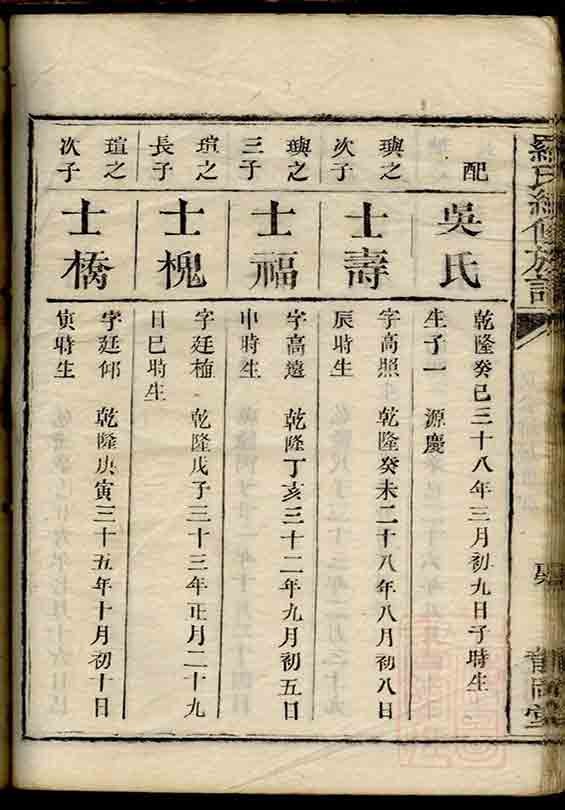 羅氏續修族譜
配
吳氏
乾隆癸巳三十八年三月初九日子時生
生子一 源慶
璵之
次子
士壽
字高照 乾隆癸未二十八年八月初八日
辰時生
璵之
三子
士福
字高遠 乾隆丁亥三十二年九月初五日
申時生
瑄之
長子
士槐
字廷植 乾隆戊子三十三年正月二十九
日巳時生
瑄之
次子
士橋
字廷邻 乾隆庚寅三十五年十月初十日
寅時生